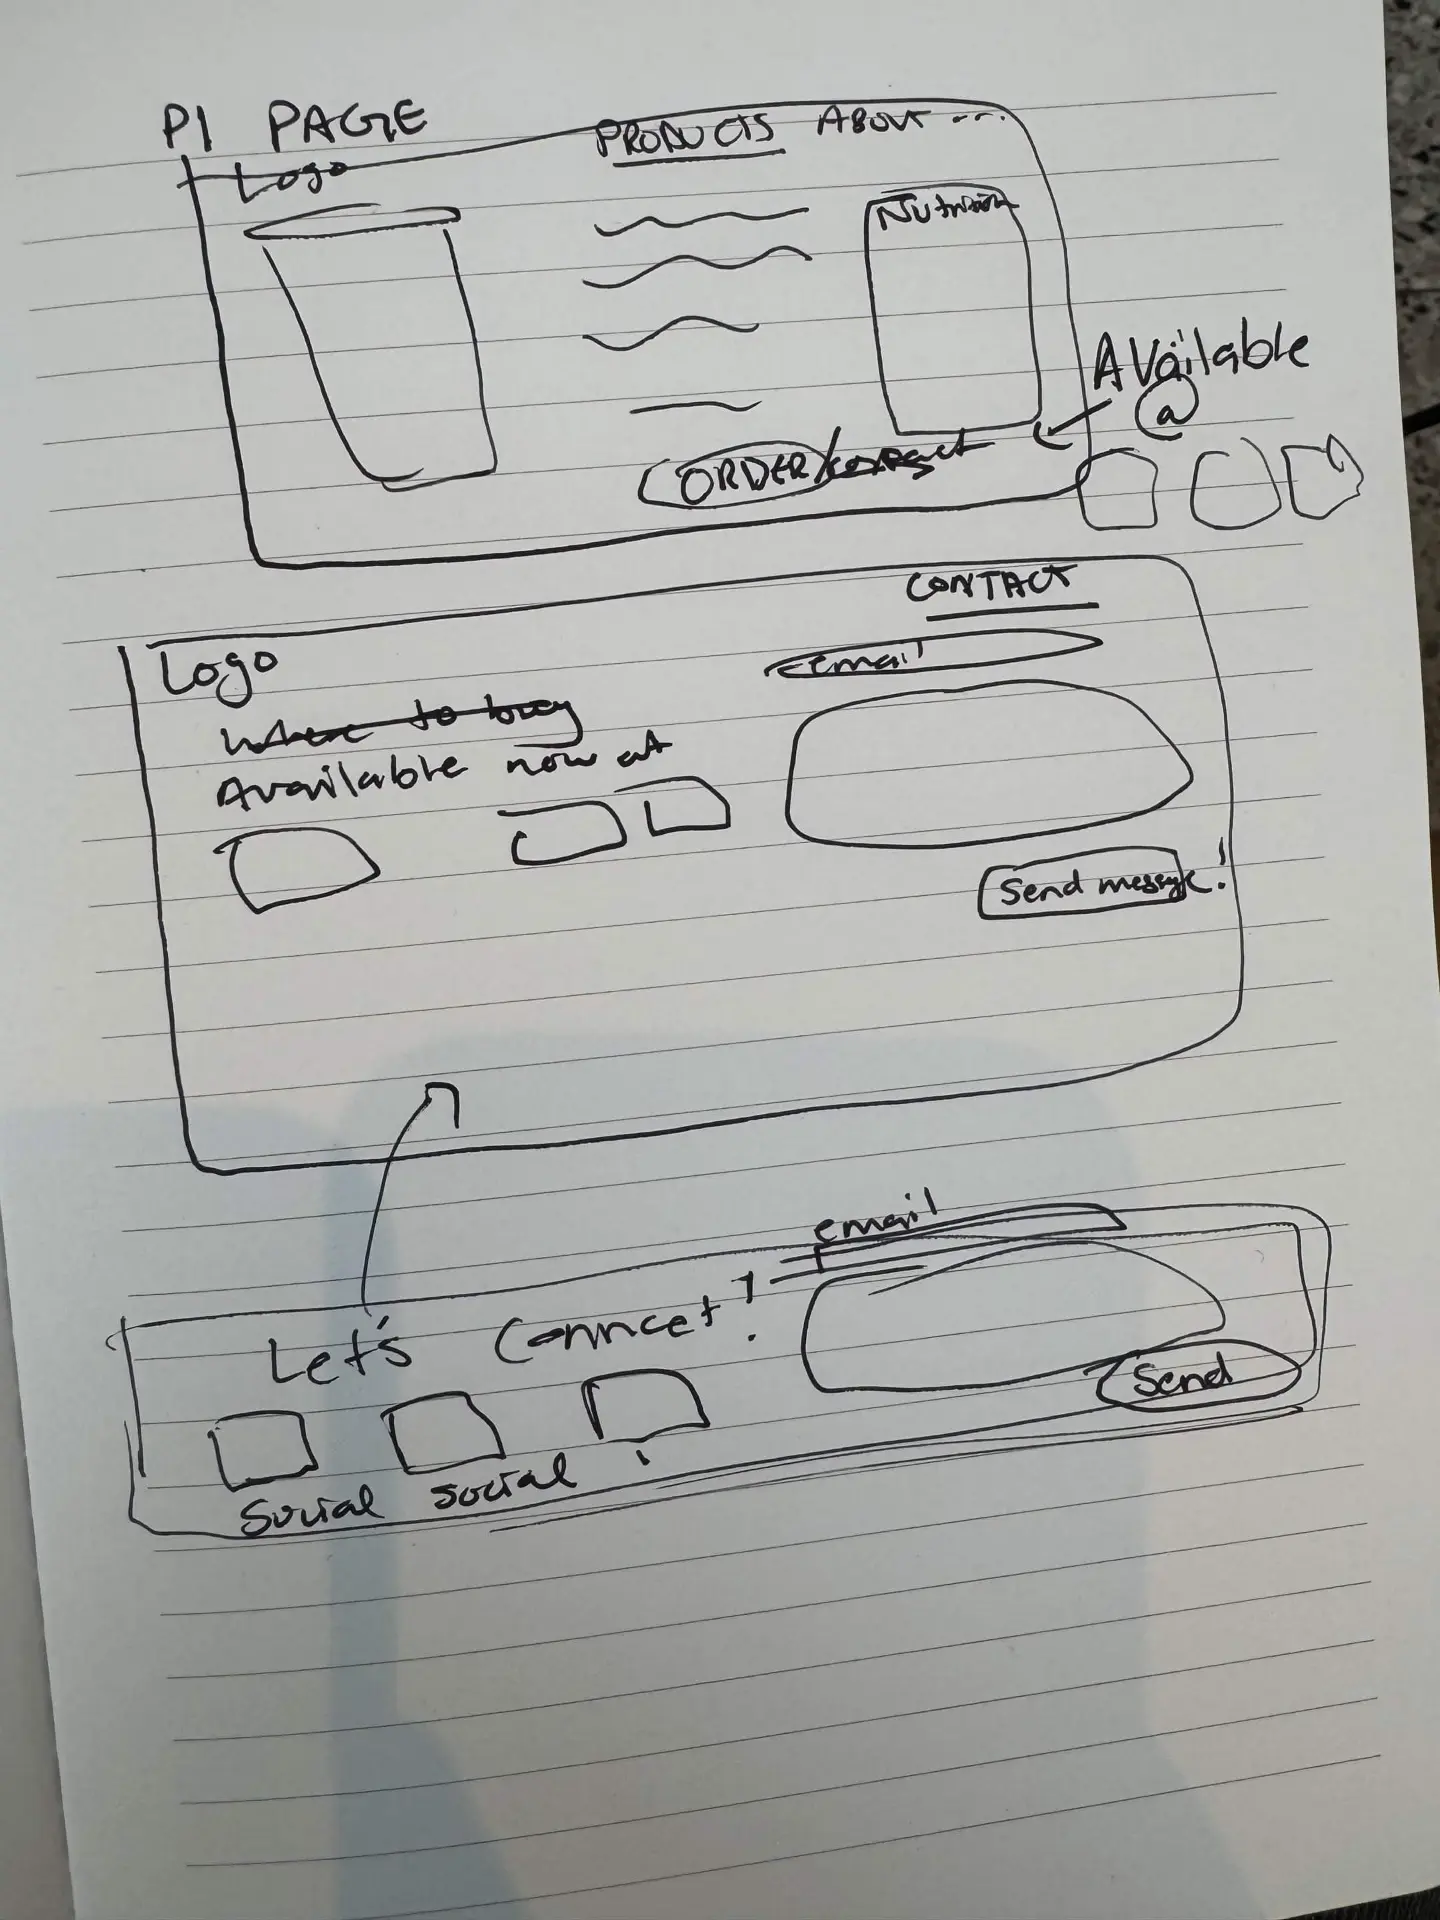 P1 PAGE
Logo
PRODUCTS ABOUT ...
Nutrition
Available
@
ORDER/contact
CONTACT
Logo
email
Where to buy
Available now at
Send message!
email
Let's Connect!
Send
Social Social